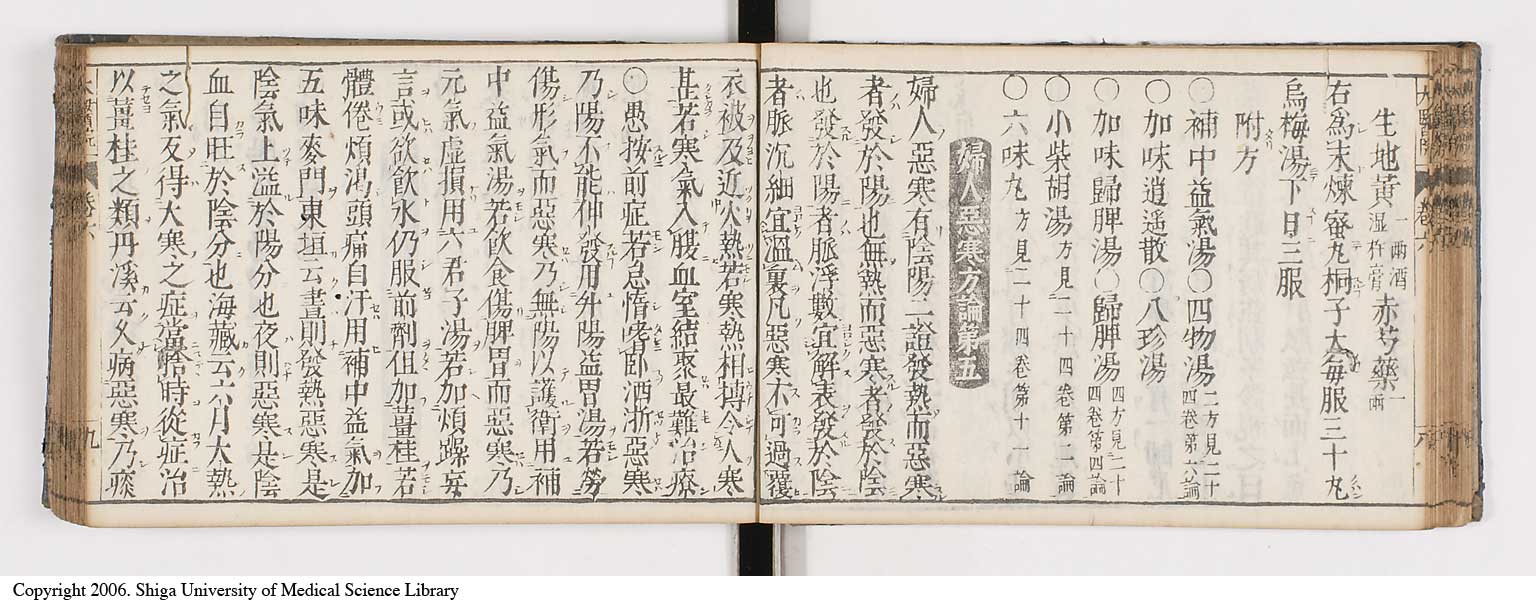 生地黃一兩酒湿杵膏赤芍藥一兩
右爲末煉蜜丸桐子大每服三十丸
烏梅湯下日三服
附方
○補中益氣湯○四物湯二方見二十四卷第六論
○加味逍遥散○八珍湯
○加味歸脾湯○歸脾湯四方見二十四卷第四論
○小柴胡湯方見二十四卷第二論
○六味丸方見二十四卷第十一論
婦人惡寒方論第五
婦人惡寒有陰陽二證發熱而惡寒
者發於陽也無熱而惡寒者發於陰
也發於陽者脈浮數宜解表發於陰
者脈沉細宜溫裏凡惡寒不可過覆
衣被及近火熱若寒熱相搏令人寒
甚若寒氣入腹血室結聚最難治療
○愚按前症若怠惰嗜臥洒淅惡寒
乃陽不能伸發用升陽益胃湯若勞
傷形氣而惡寒乃無陽以護衛用補
中益氣湯若飲食傷脾胃而惡寒乃
元氣虛損用六君子湯若加煩躁妄
言或欲飲水仍服前劑但加薑桂若
體倦煩渴頭痛自汗用補中益氣加
五味麥門東垣云晝則發熱惡寒是
陰氣上溢於陽分也夜則惡寒是陰
血自旺於陰分也海藏云六月大熱
之氣反得大寒之症當舍時從症治
以薑桂之類丹溪云久病惡寒乃痰
九
Copyright 2006. Shiga University of Medical Science Library